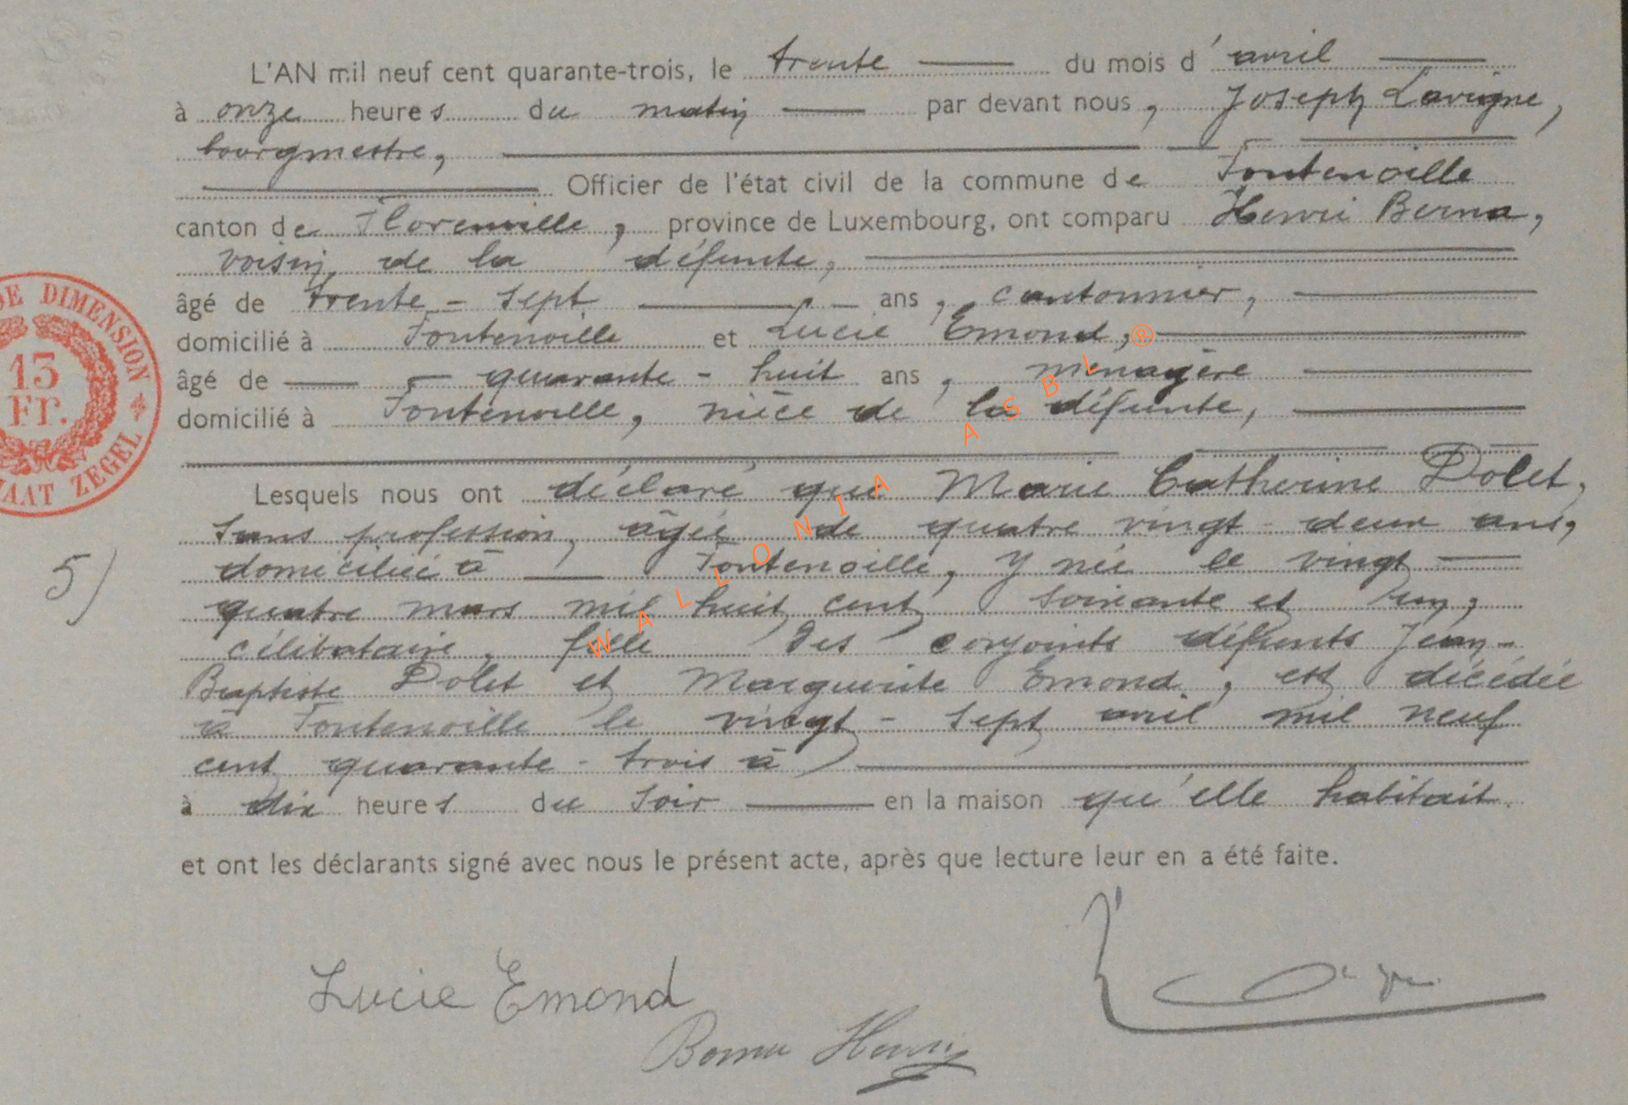 L'AN mil neuf cent quarante-trois, le trente du mois d' avril
à onze heures du matin par devant nous, Joseph Lavigne,
bourgmestre,
Officier de l'état civil de la commune de Fontenoille
canton de Florenville, province de Luxembourg, ont comparu Henri Berna,
voisin de la défunte,
âgé de trente-sept ans, cantonnier,
domicilié à Fontenoille et Lucie Emond,
âgé de quarante-huit ans, ménagère
domicilié à Fontenoille, nièce de la défunte,
Lesquels nous ont déclaré que Marie Catherine Dolet,
sans profession, âgée de quatre vingt deux ans,
domiciliée à Fontenoille, y née le vingt
quatre mars mil huit cent soixante et un,
célibataire, fille des conjoints défunts Jean-
Baptiste Dolet et Marguerite Emond, est décédée
à Fontenoille le vingt-sept avril mil neuf
cent quarante-trois à
à dix heures du soir en la maison qu'elle habitait.
et ont les déclarants signé avec nous le présent acte, après que lecture leur en a été faite.
5)
DE DIMENSION
13
Fr.
ZEGEL
WALLONIA ASBL ®
Lucie Emond
Berna Henri